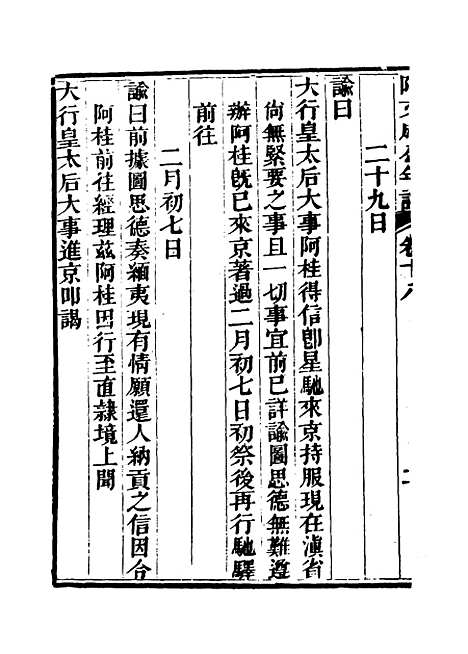 二十九日
諭曰
大行皇太后大事阿桂得信卽星馳來京持服現在滇省
尙無緊要之事且一切事宜前已詳諭圖思德無難遵
辦阿桂旣已來京著過二月初七日初祭後再行馳驛
前往
二月初七日
諭曰前據圖思德奏緬夷現有情願還人納貢之信因令
阿桂前往經理茲阿桂因行至直隸境上聞
大行皇太后大事進京叩謁